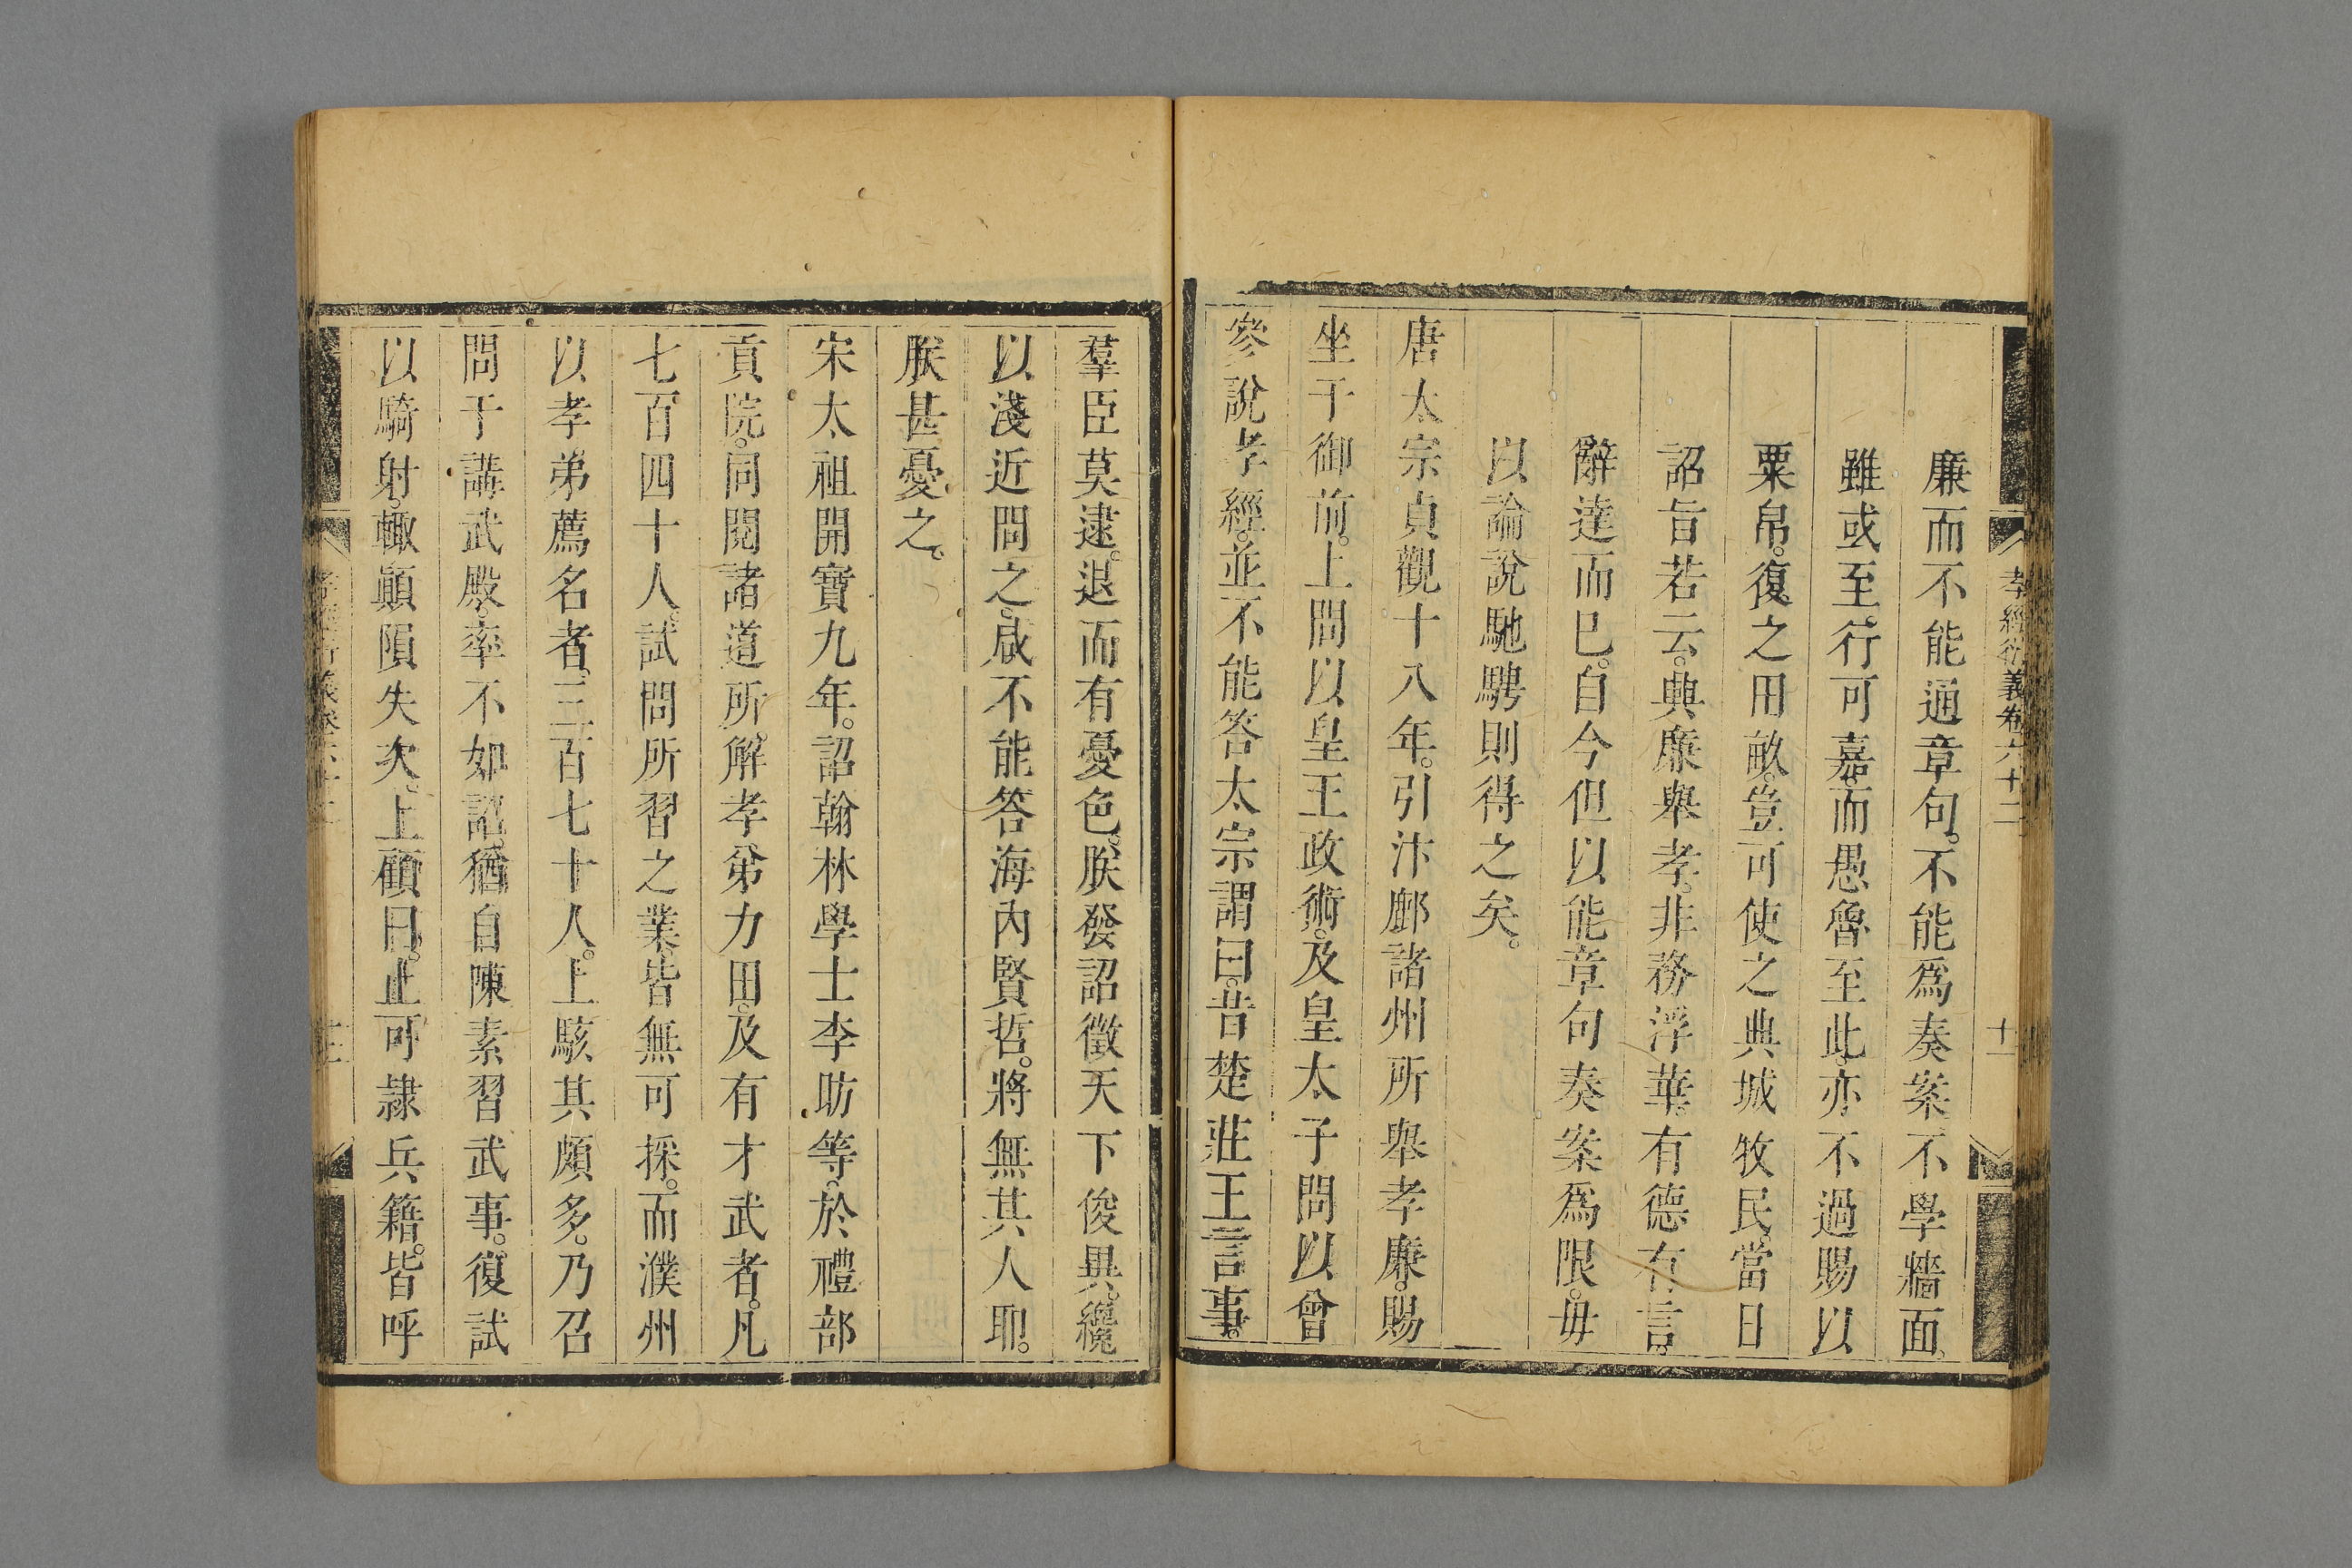 孝經衍義卷六十二 十一
廉而不能通章句。不能爲奏案。不學牆面。
雖或至。行可嘉。而愚魯至此。亦不過賜以
粟帛。復之田畝。豈可使之典城牧民。當日
詔旨若云。興廉舉孝。非務浮華。有德有言。
辭達而已。自今但以能章句奏案爲限。毋
以論說馳騁則得之矣。
唐太宗貞觀十八年。引汴鄜諸州所舉孝廉。賜
坐于御前。上問以皇王政術。及皇太子問以曾
參說孝經。並不能答太宗謂曰。昔楚莊王言事。
羣臣莫逮。退而有憂色。朕發詔徵天下俊異。纔
以淺近問之。咸不能答海內賢哲。將無其人耶。
朕甚憂之。
宋太祖開寶九年。詔翰林學士李昉等。於禮部
貢院。同閱諸道所。解孝弟力田。及有才武者。凡
七百四十人。試問所習之業。皆無可採。而濮州
以孝弟薦名者。三百七十人。上駭其頗多。乃召
問于講武殿。率不如詔。猶自陳素習武事。復試
以騎射。輙顚隕失次。上顧曰。止可隷兵籍。皆呼